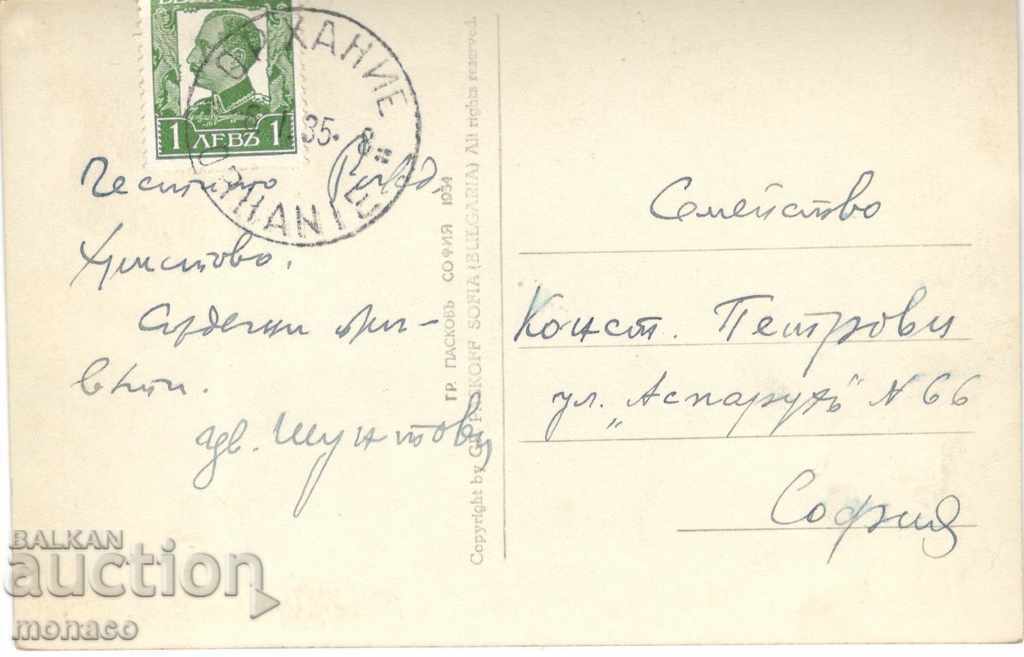 1 ЛЕВЪ 1
ОРХАНИЕ
35. 8
ORHANIE
Честито Рожд.
Христово.
Сърдечни при-
вети.
адв. Шунтови
ГР. ПАСКОВЪ СОФИЯ 1934
Copyright by G. PASKOFF SOFIA (BULGARIA) All rights reserved.
Семейство
Конст. Петрови
ул. „Аспарухъ" N 66
София
BALKAN
auction
monaco